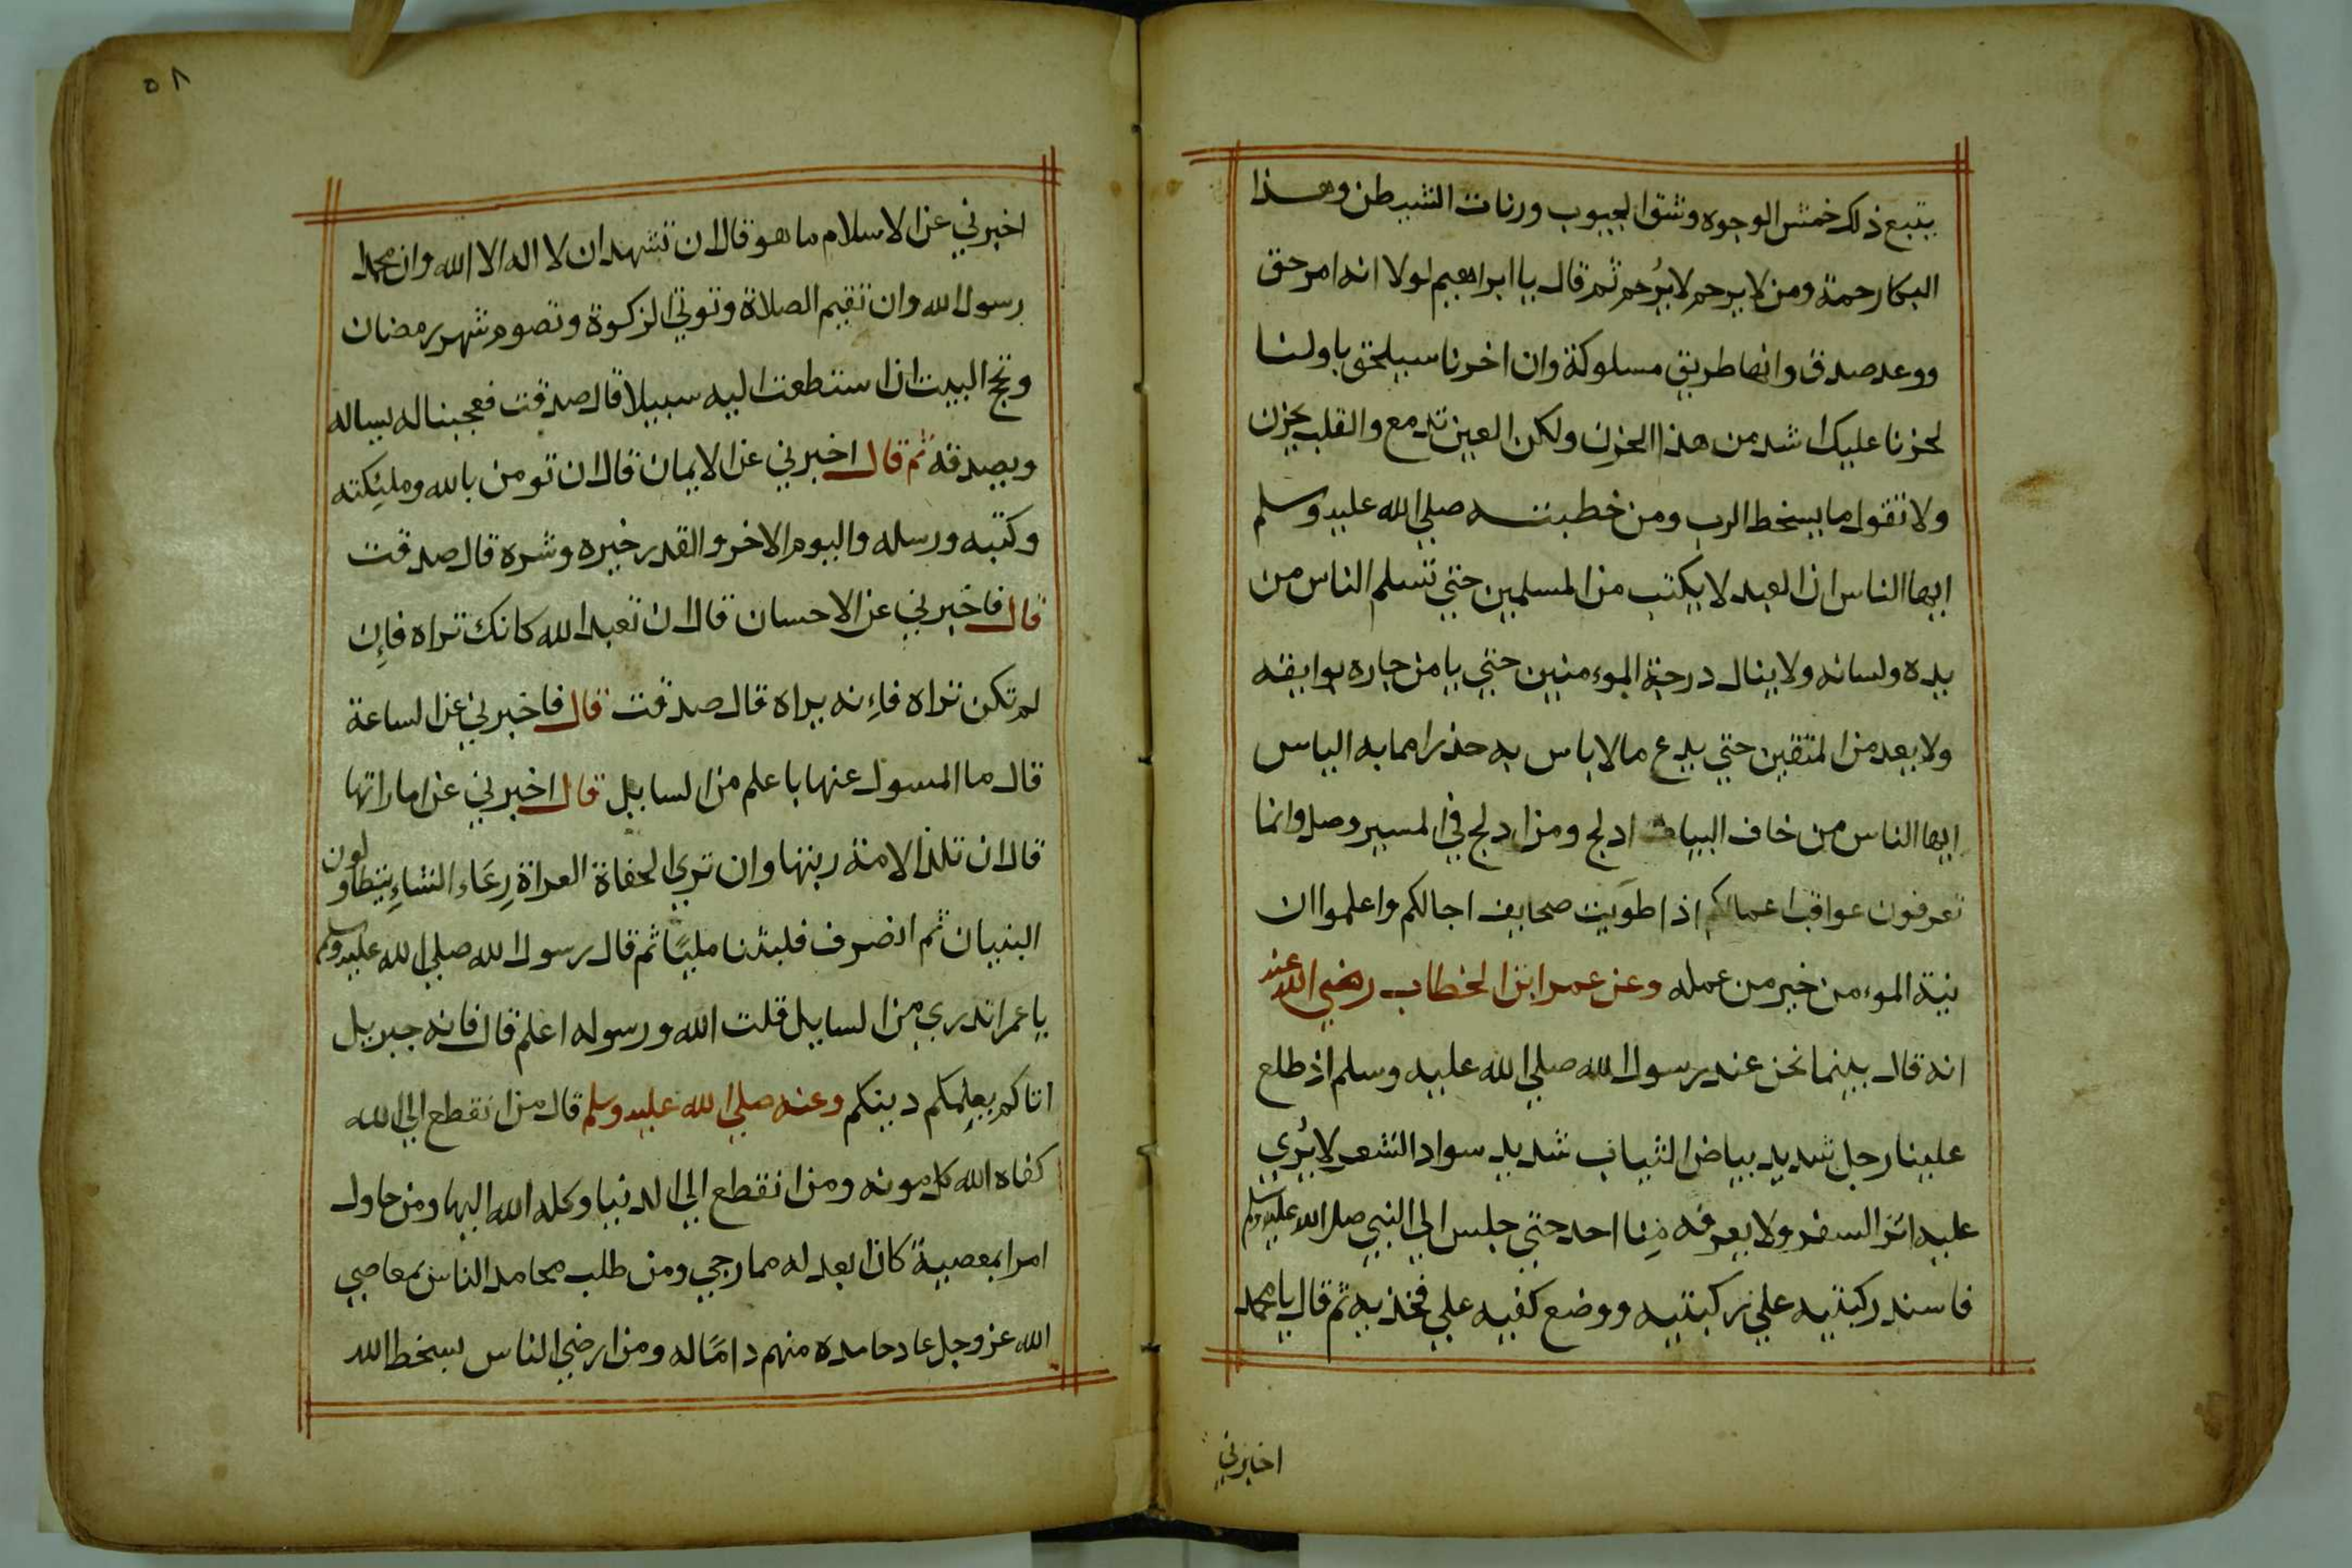 يتبع ذلك خمش الوجوه وشق الجيوب ورنات الشيطن وهذا
البكا رحمة ومن لا يرحم لا يُرحم ثم قال يا ابراهيم لولا انه امر حق
ووعد صدق وانها طريق مسلوكة وان اخرنا سيلحق باولنا
لحزنا عليك اشد من هذا الحزن ولكن العين تدمع والقلب يحزن
ولا نقول ما يسخط الرب ومن خطبته صلي الله عليه وسلم
ايها الناس ان العبد لا يكتب من المسلمين حتي تسلم الناس من
يده ولسانه ولا ينال درجة الموءمنين حتي يامن جاره بوايقه
ولا يعد من المتقين حتي يدع ما لا باس به حذرا مما به الباس
ايها الناس من خاف البيات ادلج ومن ادلج في المسير وصل وانما
تعرفون عواقب اعمالكم اذا طويت صحايف اجالكم واعلموا ان
نية الموءمن خير من عمله وعن عمر ابن الخطاب رضي الله عنه
انه قال بينما نحن عند رسول الله صلي الله عليه وسلم اذ طلع
علينا رجل شديد بياض الثياب شديد سواد الشعر لا يُري
عليه اثر السفر ولا يعرفه مِنا احد حتي جلس الي النبي صلي الله عليه وسلم
فاسند ركبتيه علي ركبتيه ووضع كفيه علي فخذيه ثم قال يا محمد
اخبرني
٥٨
اخبرني عن الاسلام ما هو قال ان تشهد ان لا اله الا الله وان محمدا
رسول الله وان تقيم الصلاة وتوتي الزكوة وتصوم شهر رمضان
وتحج البيت اذا ستطعت اليه سبيلا قال صدقت فعجبنا له يساله
ويصدقه ثم قال اخبرني عن الايمان قال ان تومن بالله ومليكته
وكتبه ورسله واليوم الاخر والقدر خيره وشره قال صدقت
قال فاخبرني عن الاحسان قال ان تعبد الله كانك تراه فإن
لم تكن تراه فاءنه يراه قال صدقت قال فاخبرني عن الساعة
قال ما المسول عنها باعلم من السايل قال اخبرني عن اماراتها
قال ان تلد الامة ربتها وان تري الحفاة العراة رِعَاء الشاءِ يتطاولون
البنيان ثم انصرف فلبثنا مليًا ثم قال رسول الله صلي الله عليه وسلم
يا عمر اتدري من السايل قلت الله ورسوله اعلم قال فانه جبريل
اتاكم يعلمكم دينكم وعنه صلي الله عليه وسلم قال من انقطع الي الله
كفاه الله كل مونه ومن انقطع الي الدنيا وكله الله اليها ومن حاول
امرا بمعصية كان ابعد له مما رجي ومن طلب محامد الناس بمعاصي
الله عز وجل عاد حامده منهم دامًا له ومن ارضي الناس بسخط الله